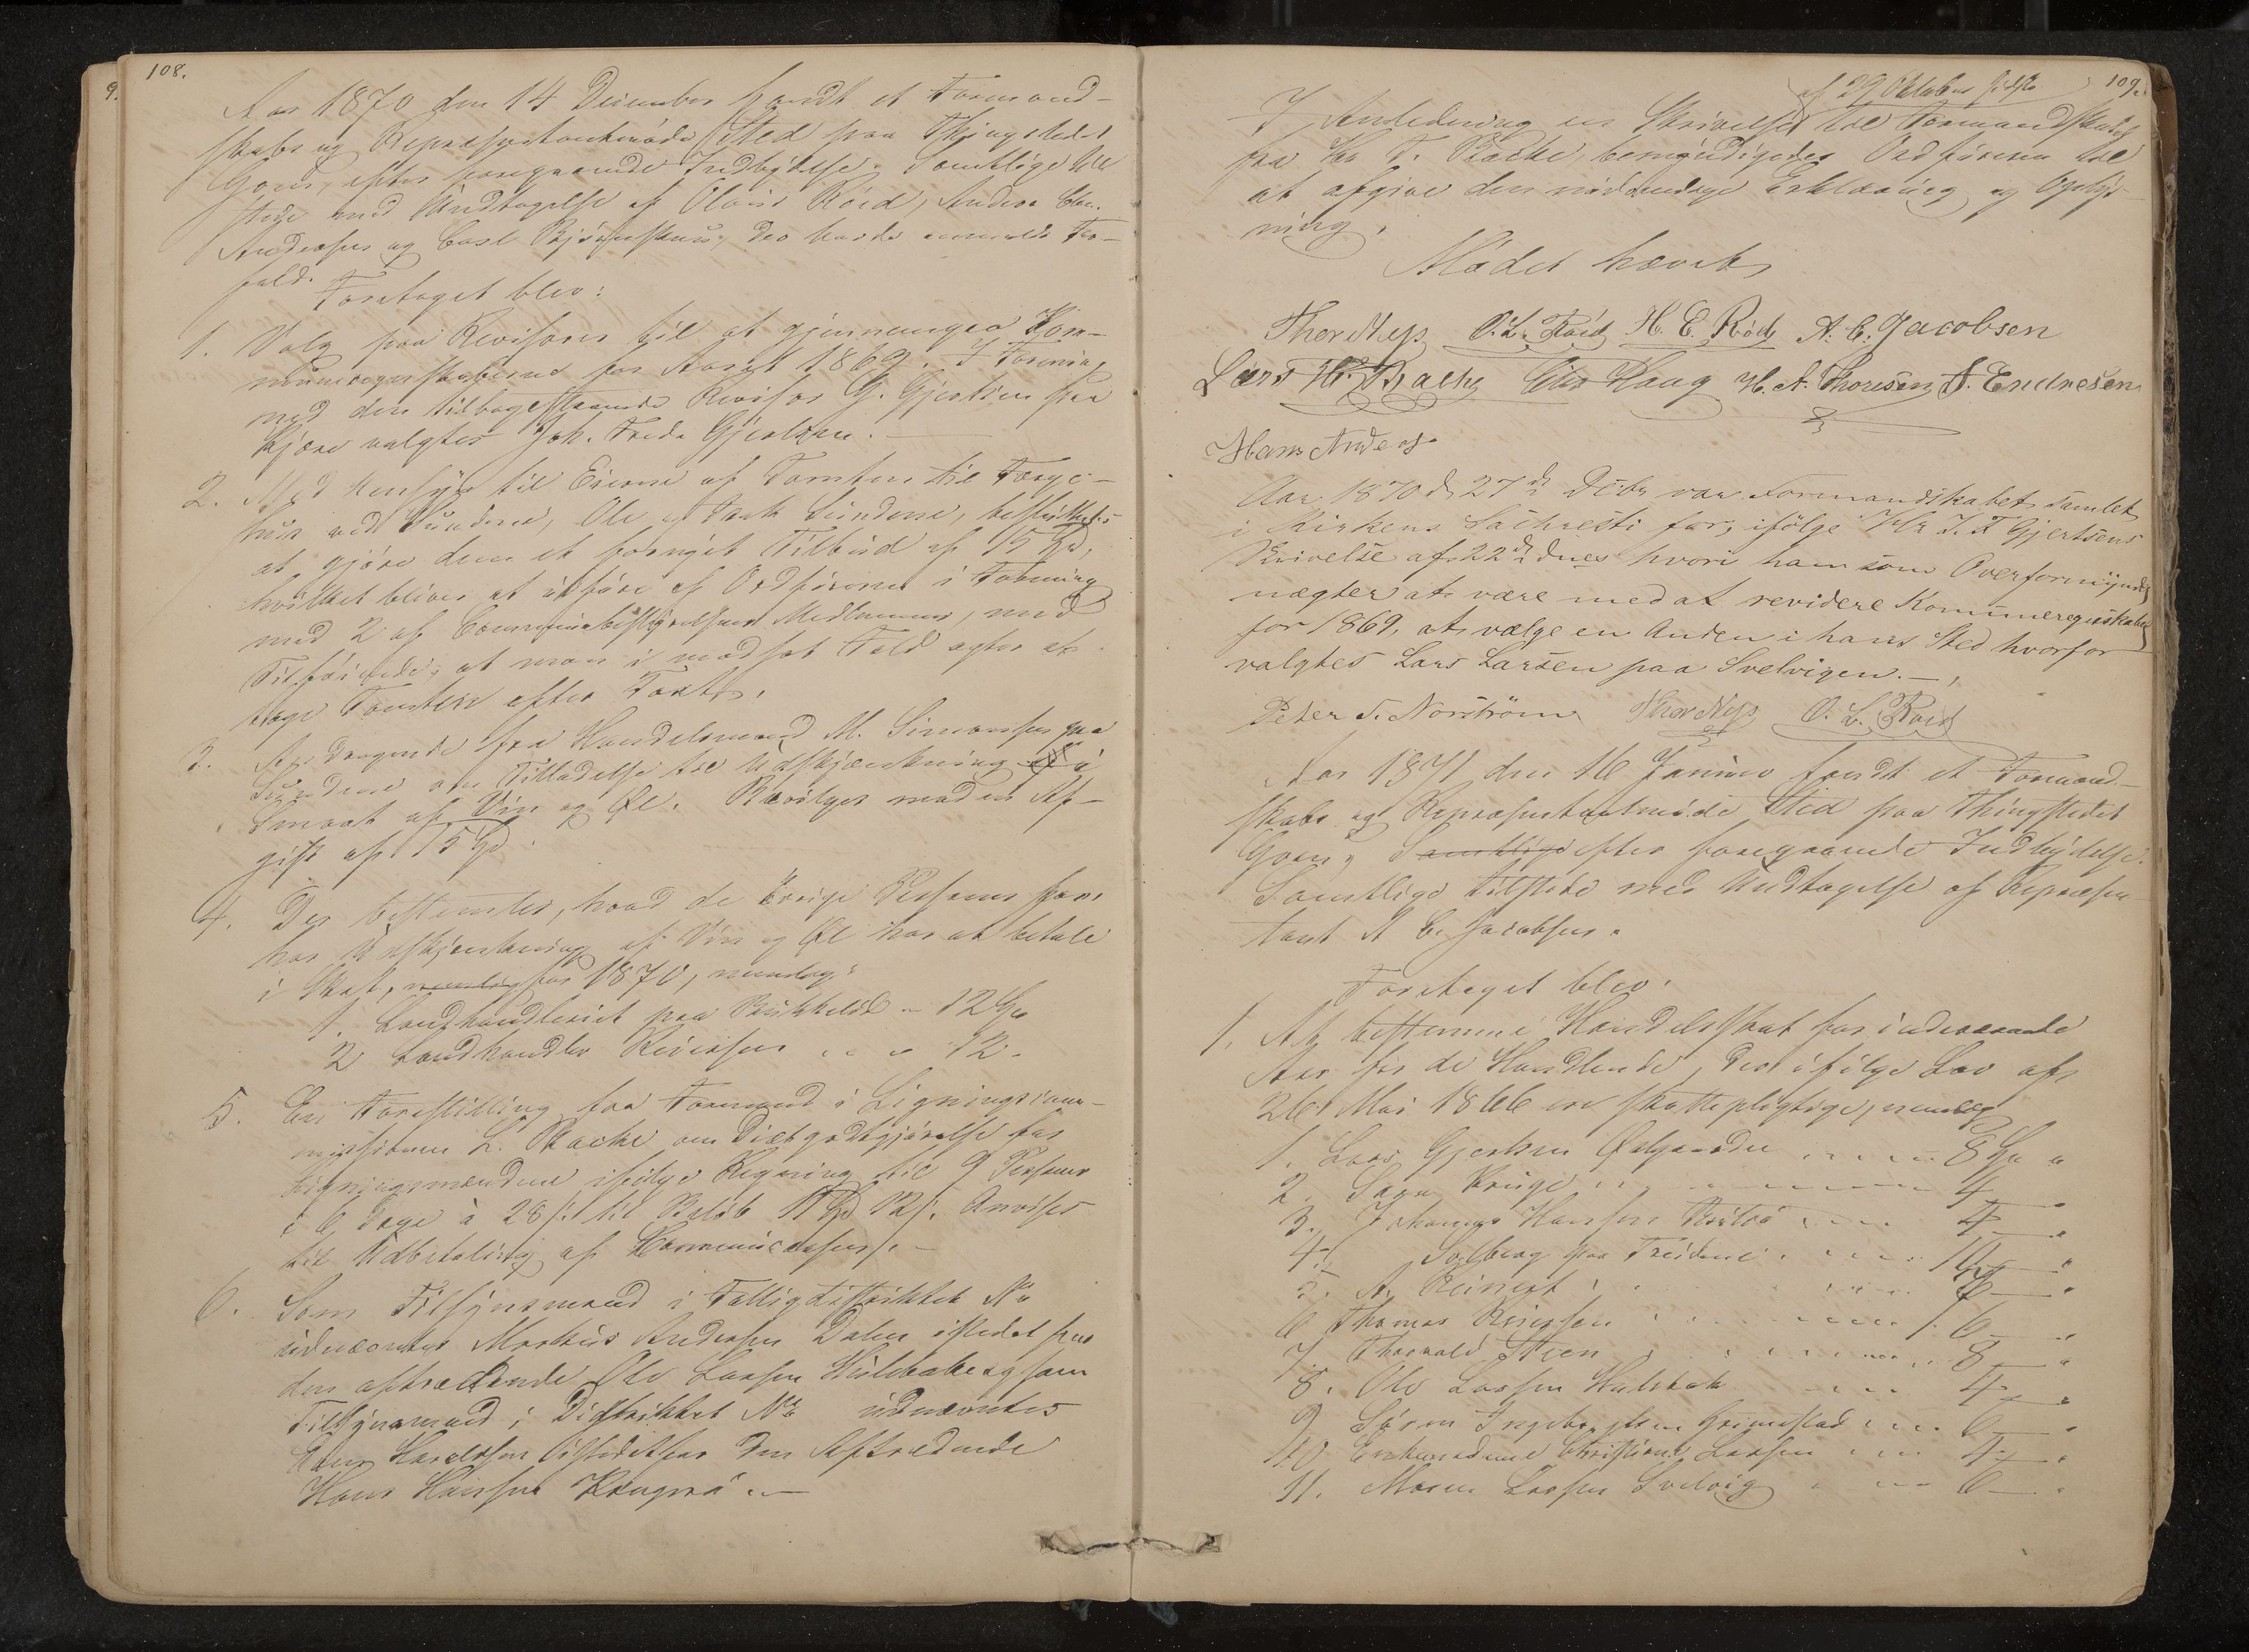 108.
Aar 1870 den 14 December handt et Formand-
skabs og Repræsentantmøde Sted paa Thingstedet
Goen, efter foregaaende Indbydelse. Samtlige til
stede med Undtagelse af Olaus Röed, Anders Chr.
Andersen og Carl Björnskau, der havde anmeldt For-
fald.
Foretaget blev:
1. Valg paa Revisorer til at gjennemgaa Kom-
muneregnskaberne for Aaret 1869. I Forening
med den tilbagestaaende Revisor G. Gjertsen fra
Kjær valgtes Joh. Fredr Gjertsen.
2. Med Hensyn til Eierne af Tomten til Færge-
huse ved Sundene, Ole og Sundene, besluttedes
at gjöre dem et fornyet Tilbud af 15 Spd,
hvilket bliver at udföre af Ordföreren i Forening
med 2 af Communebestyrelsens Medlemmer, med
Tilföiende, at man i modsat Fald agter at
tage Tomten efter Taxt.
3. Andragende fra Handelsmand M. Simonsen paa
Sundene om Tilladelse til Udskjænkning i
Smaat af Vin og Øl. Bevilges mod en Af-
gift af 15 Spd.
4. Der bestemtes, hvad de övrige Personer som
har Udskjænkning af Vin og Øl har at betale
i Skat, nemlig for 1870, nemlig:
1. Landhandleriet paa - 12 Spd
2 Landhandler Reiersen " " " 12 "
5. En Forestilling fra Formand i Ligningscom-
missionen L. Backe om Diætgodtgjörelse for
Ligningsmændene ifölge Regning til 9 Personer
i 6 Dage à 28 s. til Belöb 12 s. Anvises
til Udbetaling af Kommunecassen.
6. Som Tilsynsmand i Fattigdistriktet No
udnævntes Markus Andersen Dalen istedetfor
den aftrædende Ole Larsen Hulebak og som
Tilsynsmand i Distriktet No udnævntes
Hans istedetfor den Aftrædende
Hans Hansen
109.
af 29 Oktober sidste
I Anledning en Skrivelse til Formandskabet
fra Hr F. Backe, bemyndigedes Ordföreren til
at afgive den nödvendige Erklæring og Oplys-
ning.
Mödet hævet
Thor Nups O. L. Röed H. E. Röd A. C. Jacobsen
Lars H. Backe Haug H. A. Thoresen J. Endresen
Hans Anders
Aar 1870 d. 27de Decbr var Formandskabet samlet
i Kirkens Sachresti for, ifölge Hr J. F Gjertsens
Skrivelse af 22de dnes hvori han som Overformynder
nægter at være med at revidere Komuneregnskabet
for 1869, at vælge en Anden i hans Sted hvorfor
valgtes Lars Larsen paa Svelvigen. —
Peter S. Norström Thor Nups O. L. Röed
Aar 1871 den 16 Januar fandt et Formand-
skabs og Repræsentantmöde Sted paa Thingstedet
Goen, Samtlige efter foregaaende Indbydelse.
Samtlige tilstede med Undtagelse af Repræsen-
tant A C. Jacobsen.
Foretaget blev.
1. At bestemme Handelsskat for indeværende
Aar for de Handlende, der ifölge Lov af
26 Mai 1866 er skattepligtige, nemlig
1. Lars Gjertsen 8 Spd "
2. Krüge 4 — "
3. Johannes Hansen 4 — "
4. Solberg paa 10 — "
5. A. Reinert
6 Thomas Reiersen 6 — "
7. Thorvald Steen 8 — "
8. Ole Larsen Hulebak 4 — "
9 Sören Ingebrigtsen Grimstad 6 — "
10 Enkemadame Christiane Larsen 4 — "
11. Maren Larsen Svelvig 6 — "